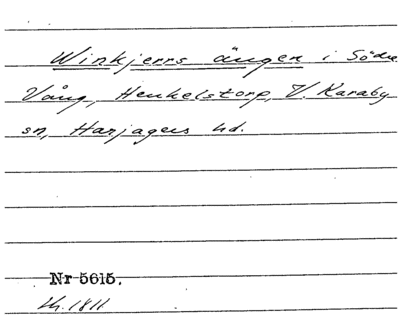 Winkjerrs ängen i Södre
Vång, Henkelstorp, V. Karaby
sn, Harjagers hd.
Nr 5615.
Lh. 1811